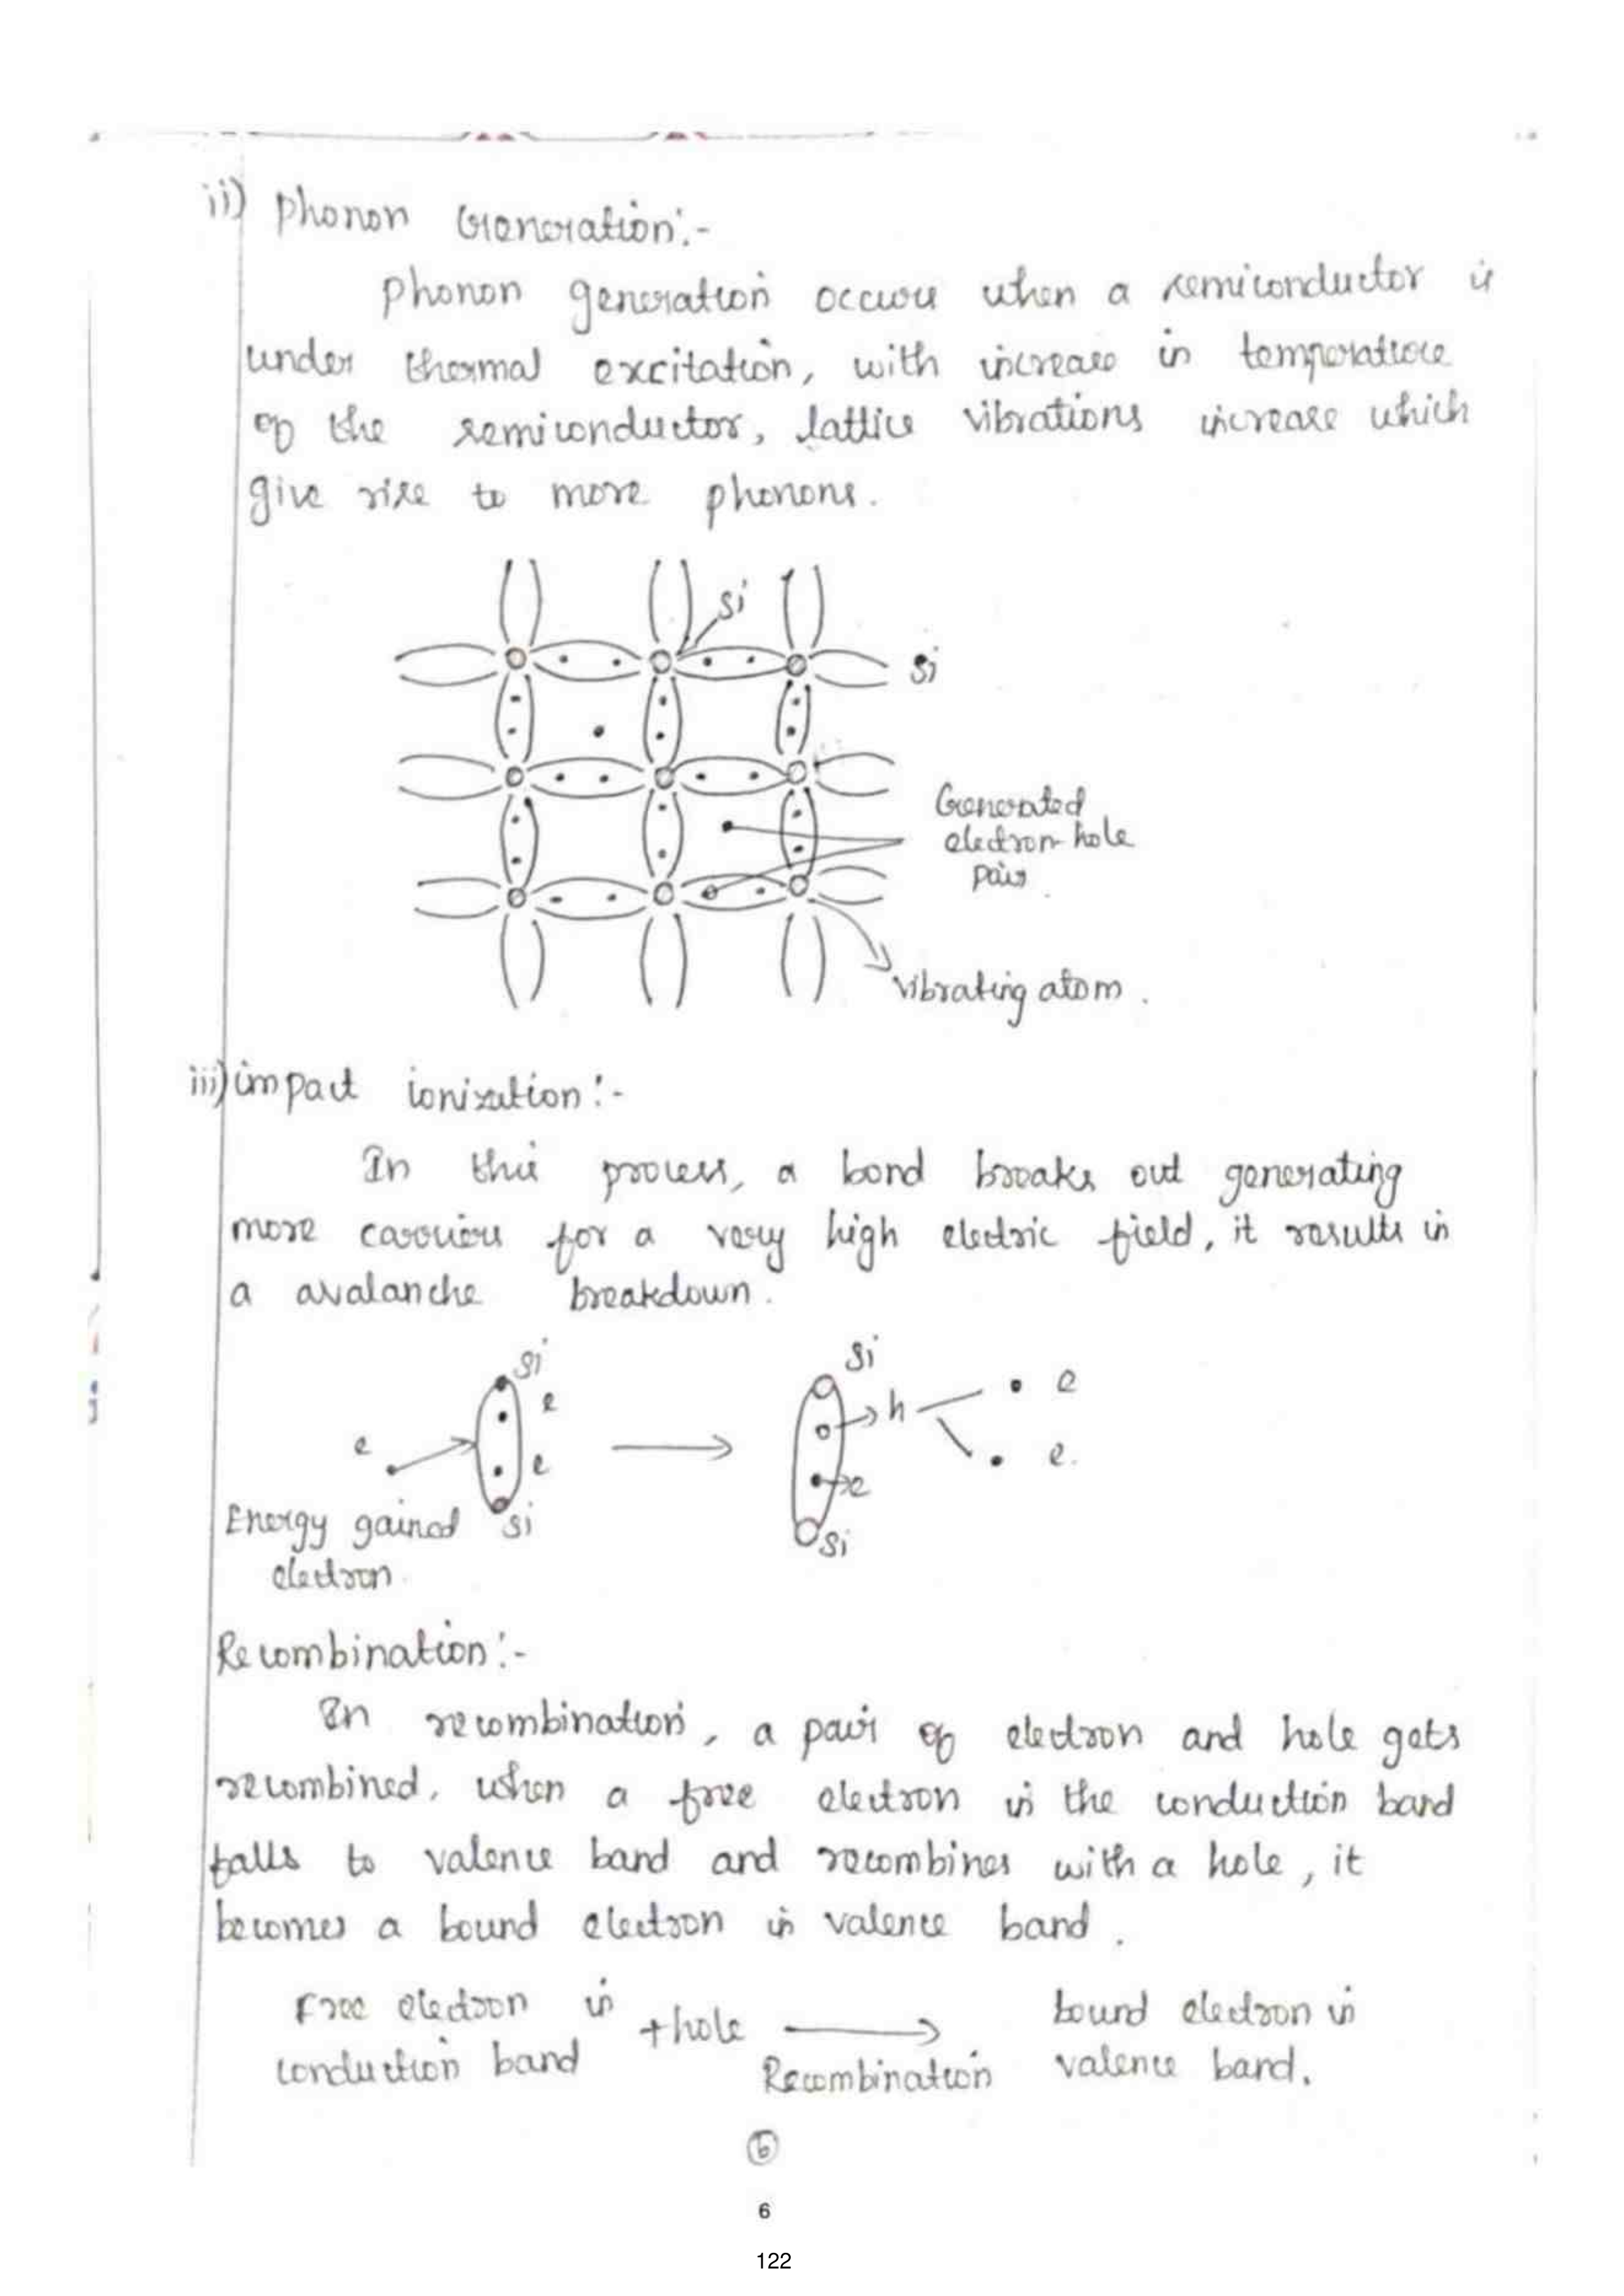 ii) Phonon Generation:-
Phonon generation occurs when a semiconductor is
under thermal excitation, with increase in temperature
of the semiconductor, lattice vibrations increase which
give rise to more phonons.
Si
Si
Generated
electron-hole
pair.
vibrating atom.
iii) impact ionization:-
In this process, a bond breaks out generating
more carriers for a very high electric field, it results in
a avalanche breakdown.
Si
Si
e
h
e
e
e
e
e
e
Energy gained
Si
Si
electron.
Recombination:-
In recombination, a pair of electron and hole gets
recombined, when a free electron in the conduction band
falls to valence band and recombines with a hole, it
becomes a bound electron in valence band.
Free electron in +hole ⟶ bound electron in
conduction band Recombination valence band.
6
6
122